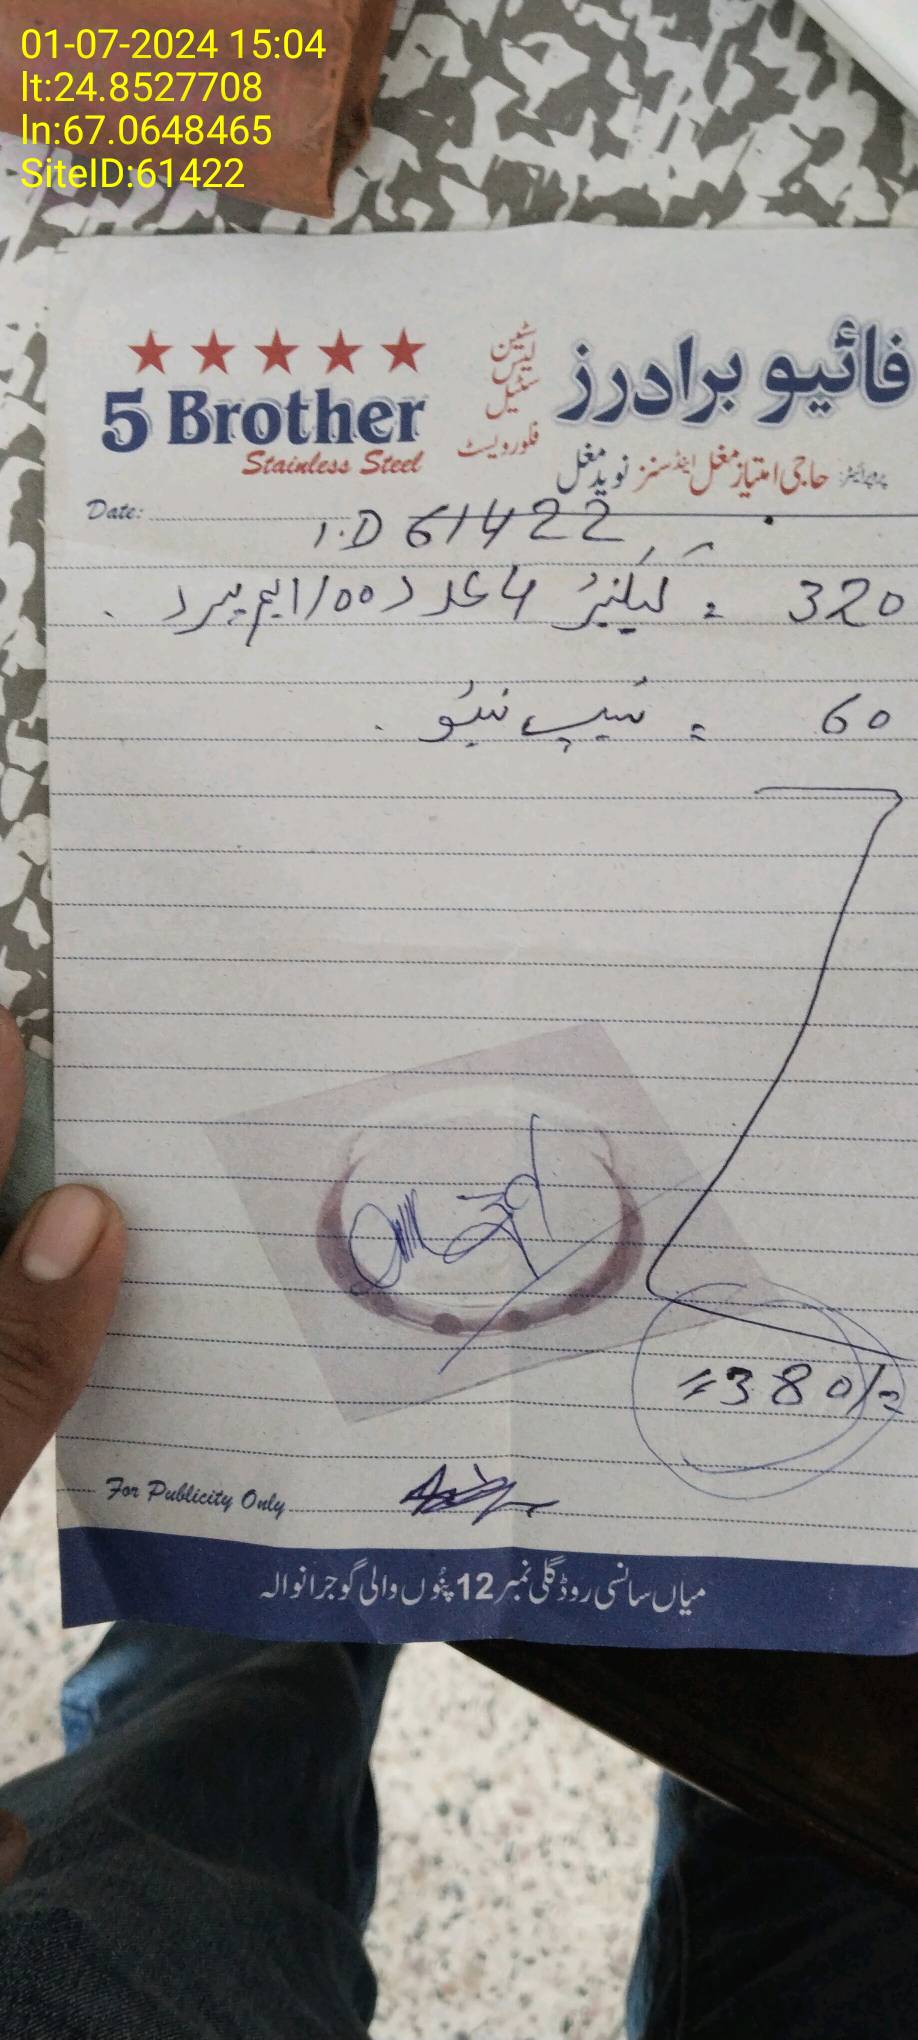 01-07-2024 15:04
lt:24.8527708
ln:67.0648465
SiteID:61422
5 Brother
Stainless Steel
فائیو برادرز
سٹین
لیس
سٹیل
فلورویسٹ
پروپرائیٹر: حاجی امتیاز مغل اینڈ سنز نوید مغل
Date:
I.D 61422
320 = 4 عدد 100/ایمپیر
60 = ٹیپ نیٹو
=380/=
For Publicity Only
میاں سانسی روڈ گلی نمبر 12 پنوں والی گوجرانوالہ